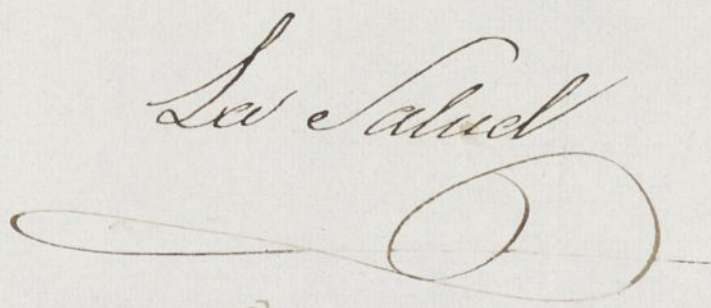 La Salud